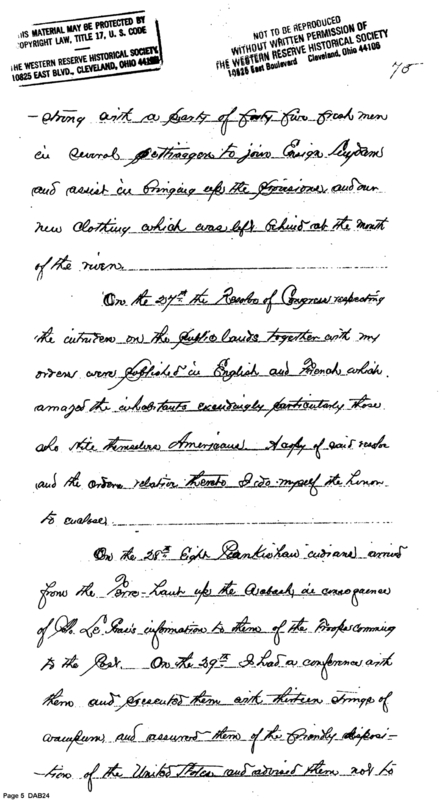 THIS MATERIAL MAY BE PROTECTED BY
COPYRIGHT LAW, TITLE 17, U. S. CODE
THE WESTERN RESERVE HISTORICAL SOCIETY
10825 EAST BLVD., CLEVELAND, OHIO 44106
NOT TO BE REPRODUCED
WITHOUT WRITTEN PERMISSION OF
THE WESTERN RESERVE HISTORICAL SOCIETY
10825 East Boulevard Cleveland, Ohio 44106
75
-strong with a party of forty five fresh men
in several pettiaugers to join Ensign Suydam
and assist in bringing up the provisions and our
new clothing which was left behind at the mouth
of the river
On the 27th the Resolve of Congress respecting
the intruders on the public lands together with my
orders were published in English and French which
amazed the inhabitants exceedingly particularly those
who stile themselves Americans. A copy of said resolve
and the orders relative thereto I do myself the honor
to enclose
On the 28th Eight Peankishaw indians arrived
from the Terre-Haut up the Wabash in consequence
of Mr. Le Gras's information to them of the Troops comming
to the Post. On the 29th I had a conference with
them and presented them with thirteen strings of
wampum and assured them of the friendly disposi-
-tion of the United States and advised them not to
Page 5 DAB24